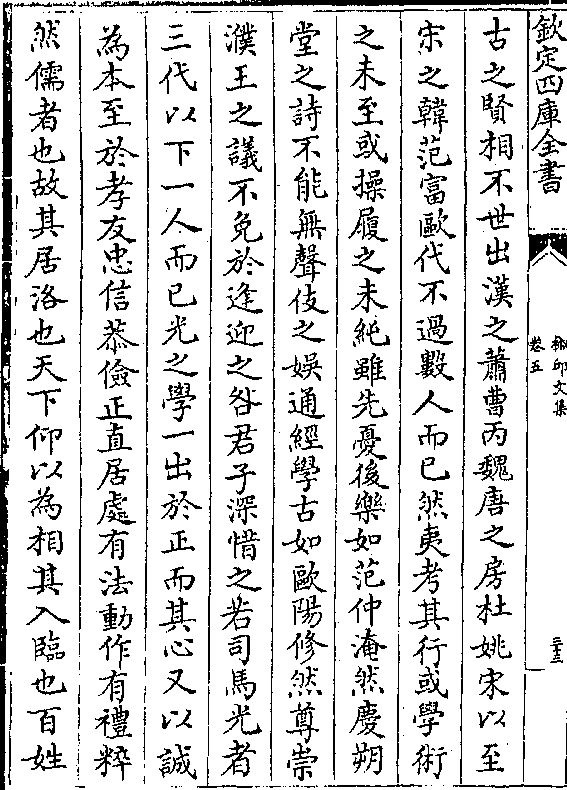 欽定四庫全書
卷五
三十三
古之賢相不世出漢之蕭曹丙魏唐之房杜姚宋以至
宋之韓范富歐代不過數人而已然夷考其行或學術
之未至或操履之未純雖先憂後樂如范仲淹然慶朔
堂之詩不能無聲伎之娛通經學古如歐陽修然尊崇
濮王之議不免於逢迎之咎君子深惜之若司馬光者
三代以下一人而已光之學一出於正而其心又以誠
為本至於孝友忠信恭儉正直居處有法動作有禮粹
然儒者也故其居洛也天下仰以為相其入臨也百姓